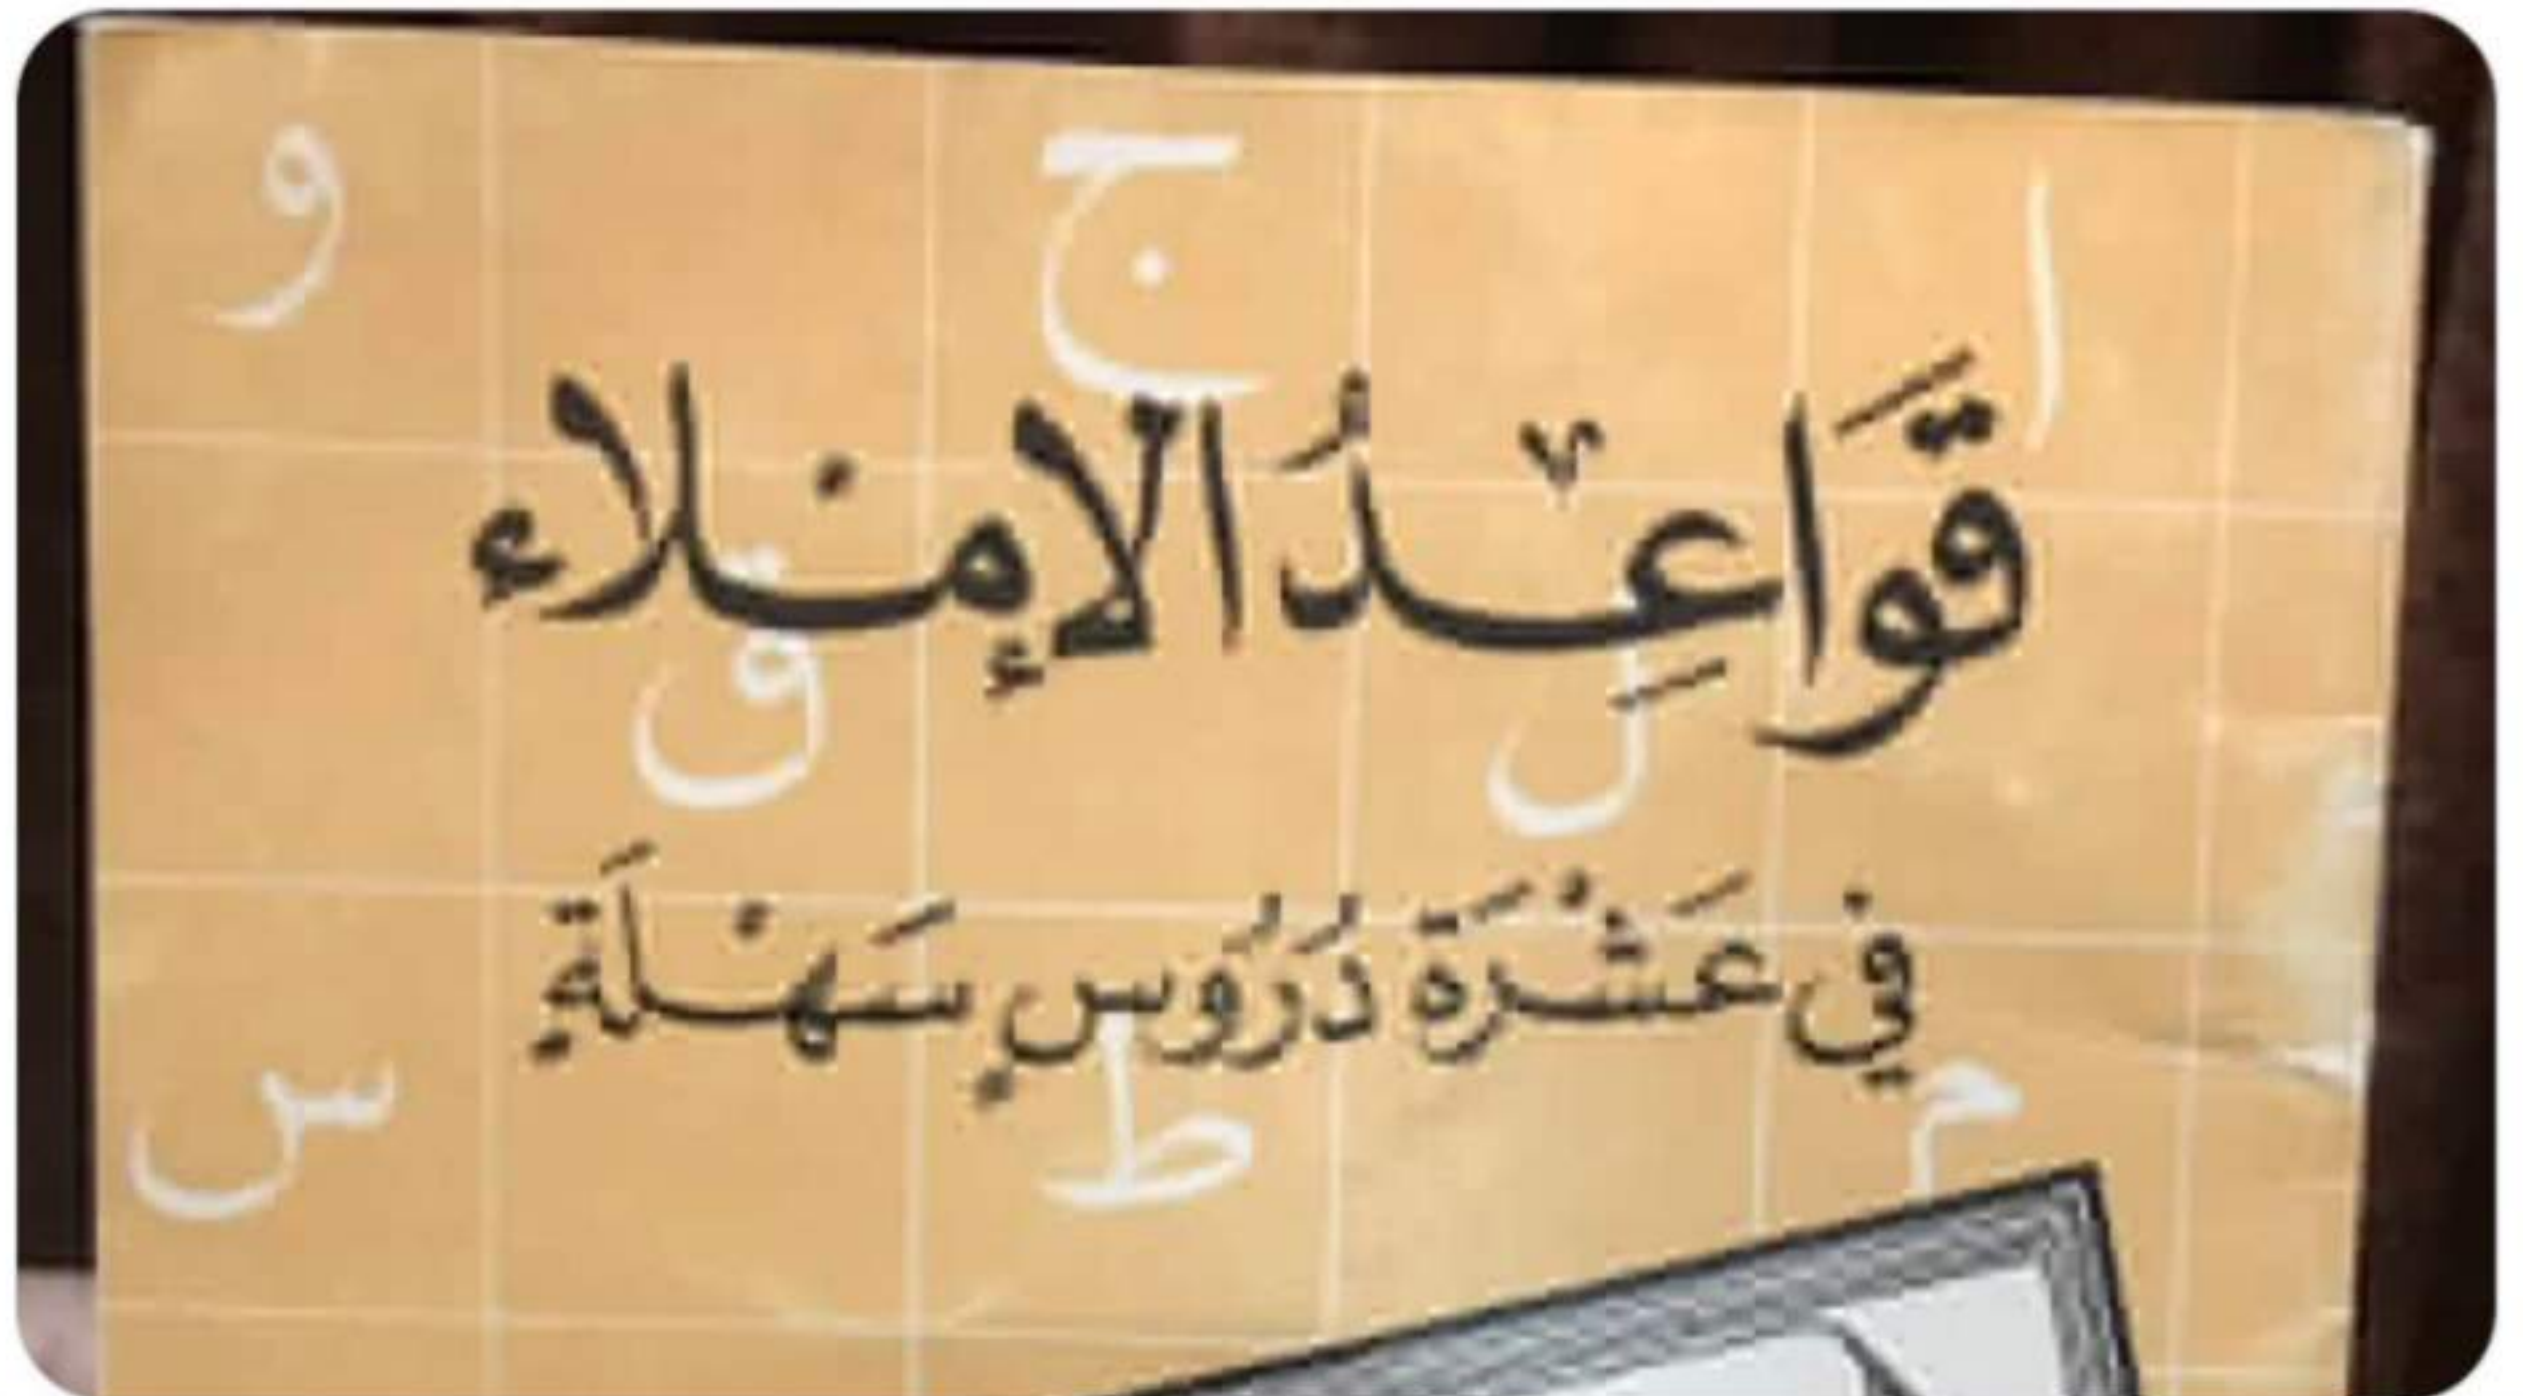 و ج ا
قَوَاعِدُ الإِمْلاء
ق ل
في عَشْرَةَ دُرُوسٍ سَهْلَةٍ
س ط م